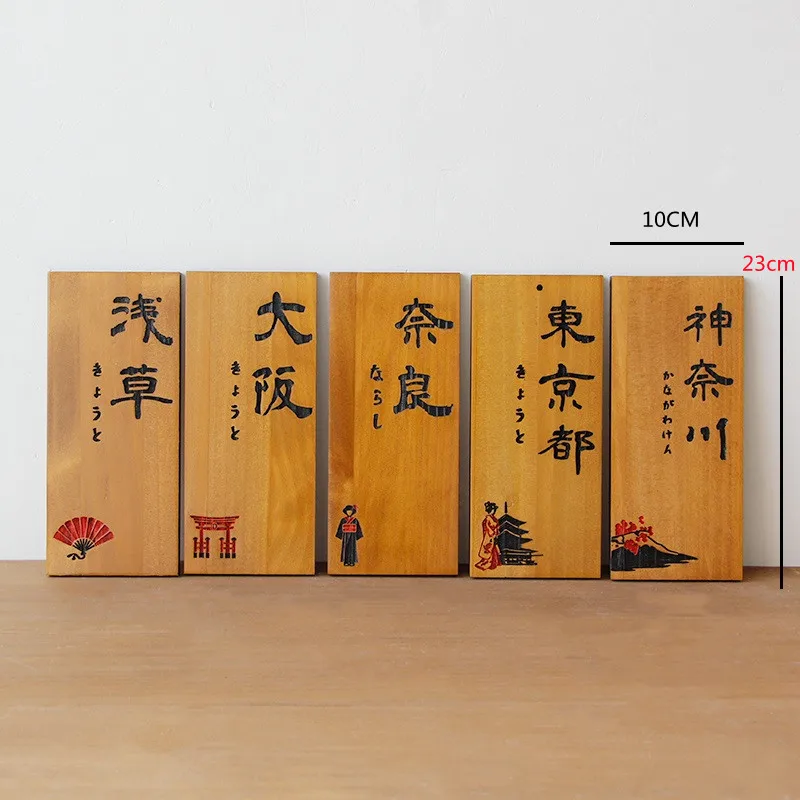 10CM
23cm
浅草
きょうと
大阪
きょうと
奈良
ならし
東京都
きょうと
神奈川
かながわけん